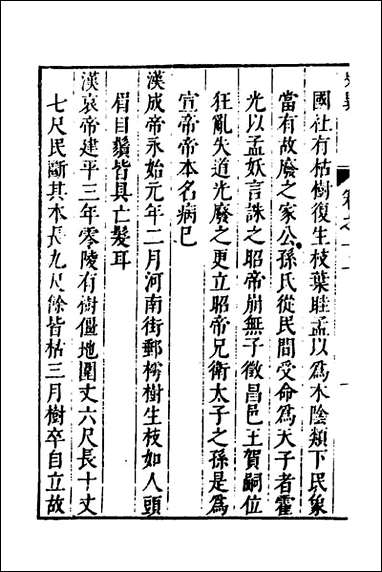 國社有枯樹復生枝葉眭孟以爲木陰類下民象
當有故廢之家公孫氏從民間受命爲天子者霍
光以孟妖言誅之昭帝崩無子徵昌邑王賀嗣位
狂亂失道光廢之更立昭帝兄衛太子之孫是爲
宣帝帝本名病巳
漢成帝永始元年二月河南街郵樗樹生枝如人頭
眉目鬚皆具亡髮耳
漢哀帝建平三年零陵有樹僵地圍丈六尺長十丈
七尺民斷其本長九尺餘皆枯三月樹卒自立故